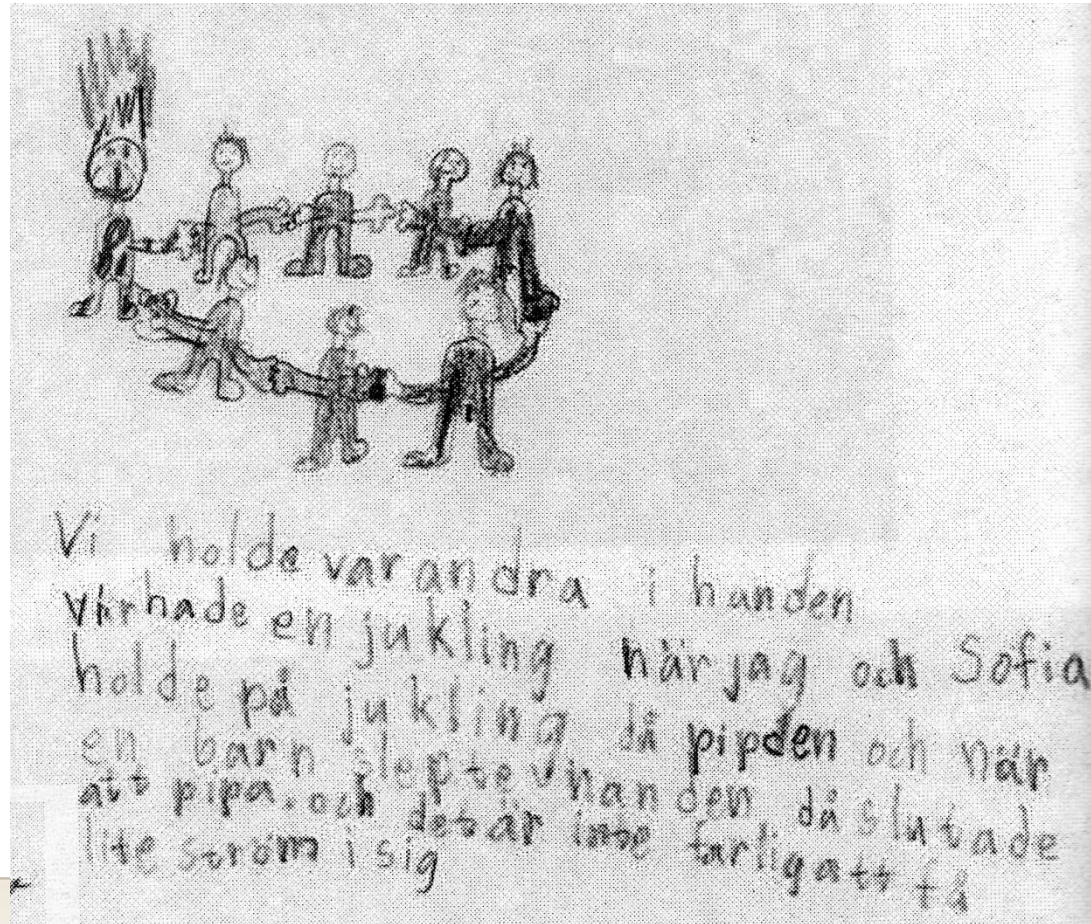 Vi holde varandra i handen
vi hade en jukling när jag och Sofia
holde på jukling då pipden och när
en barn slepte handen då slutade
att pipa. och det är inte farlig att få
lite ström i sig